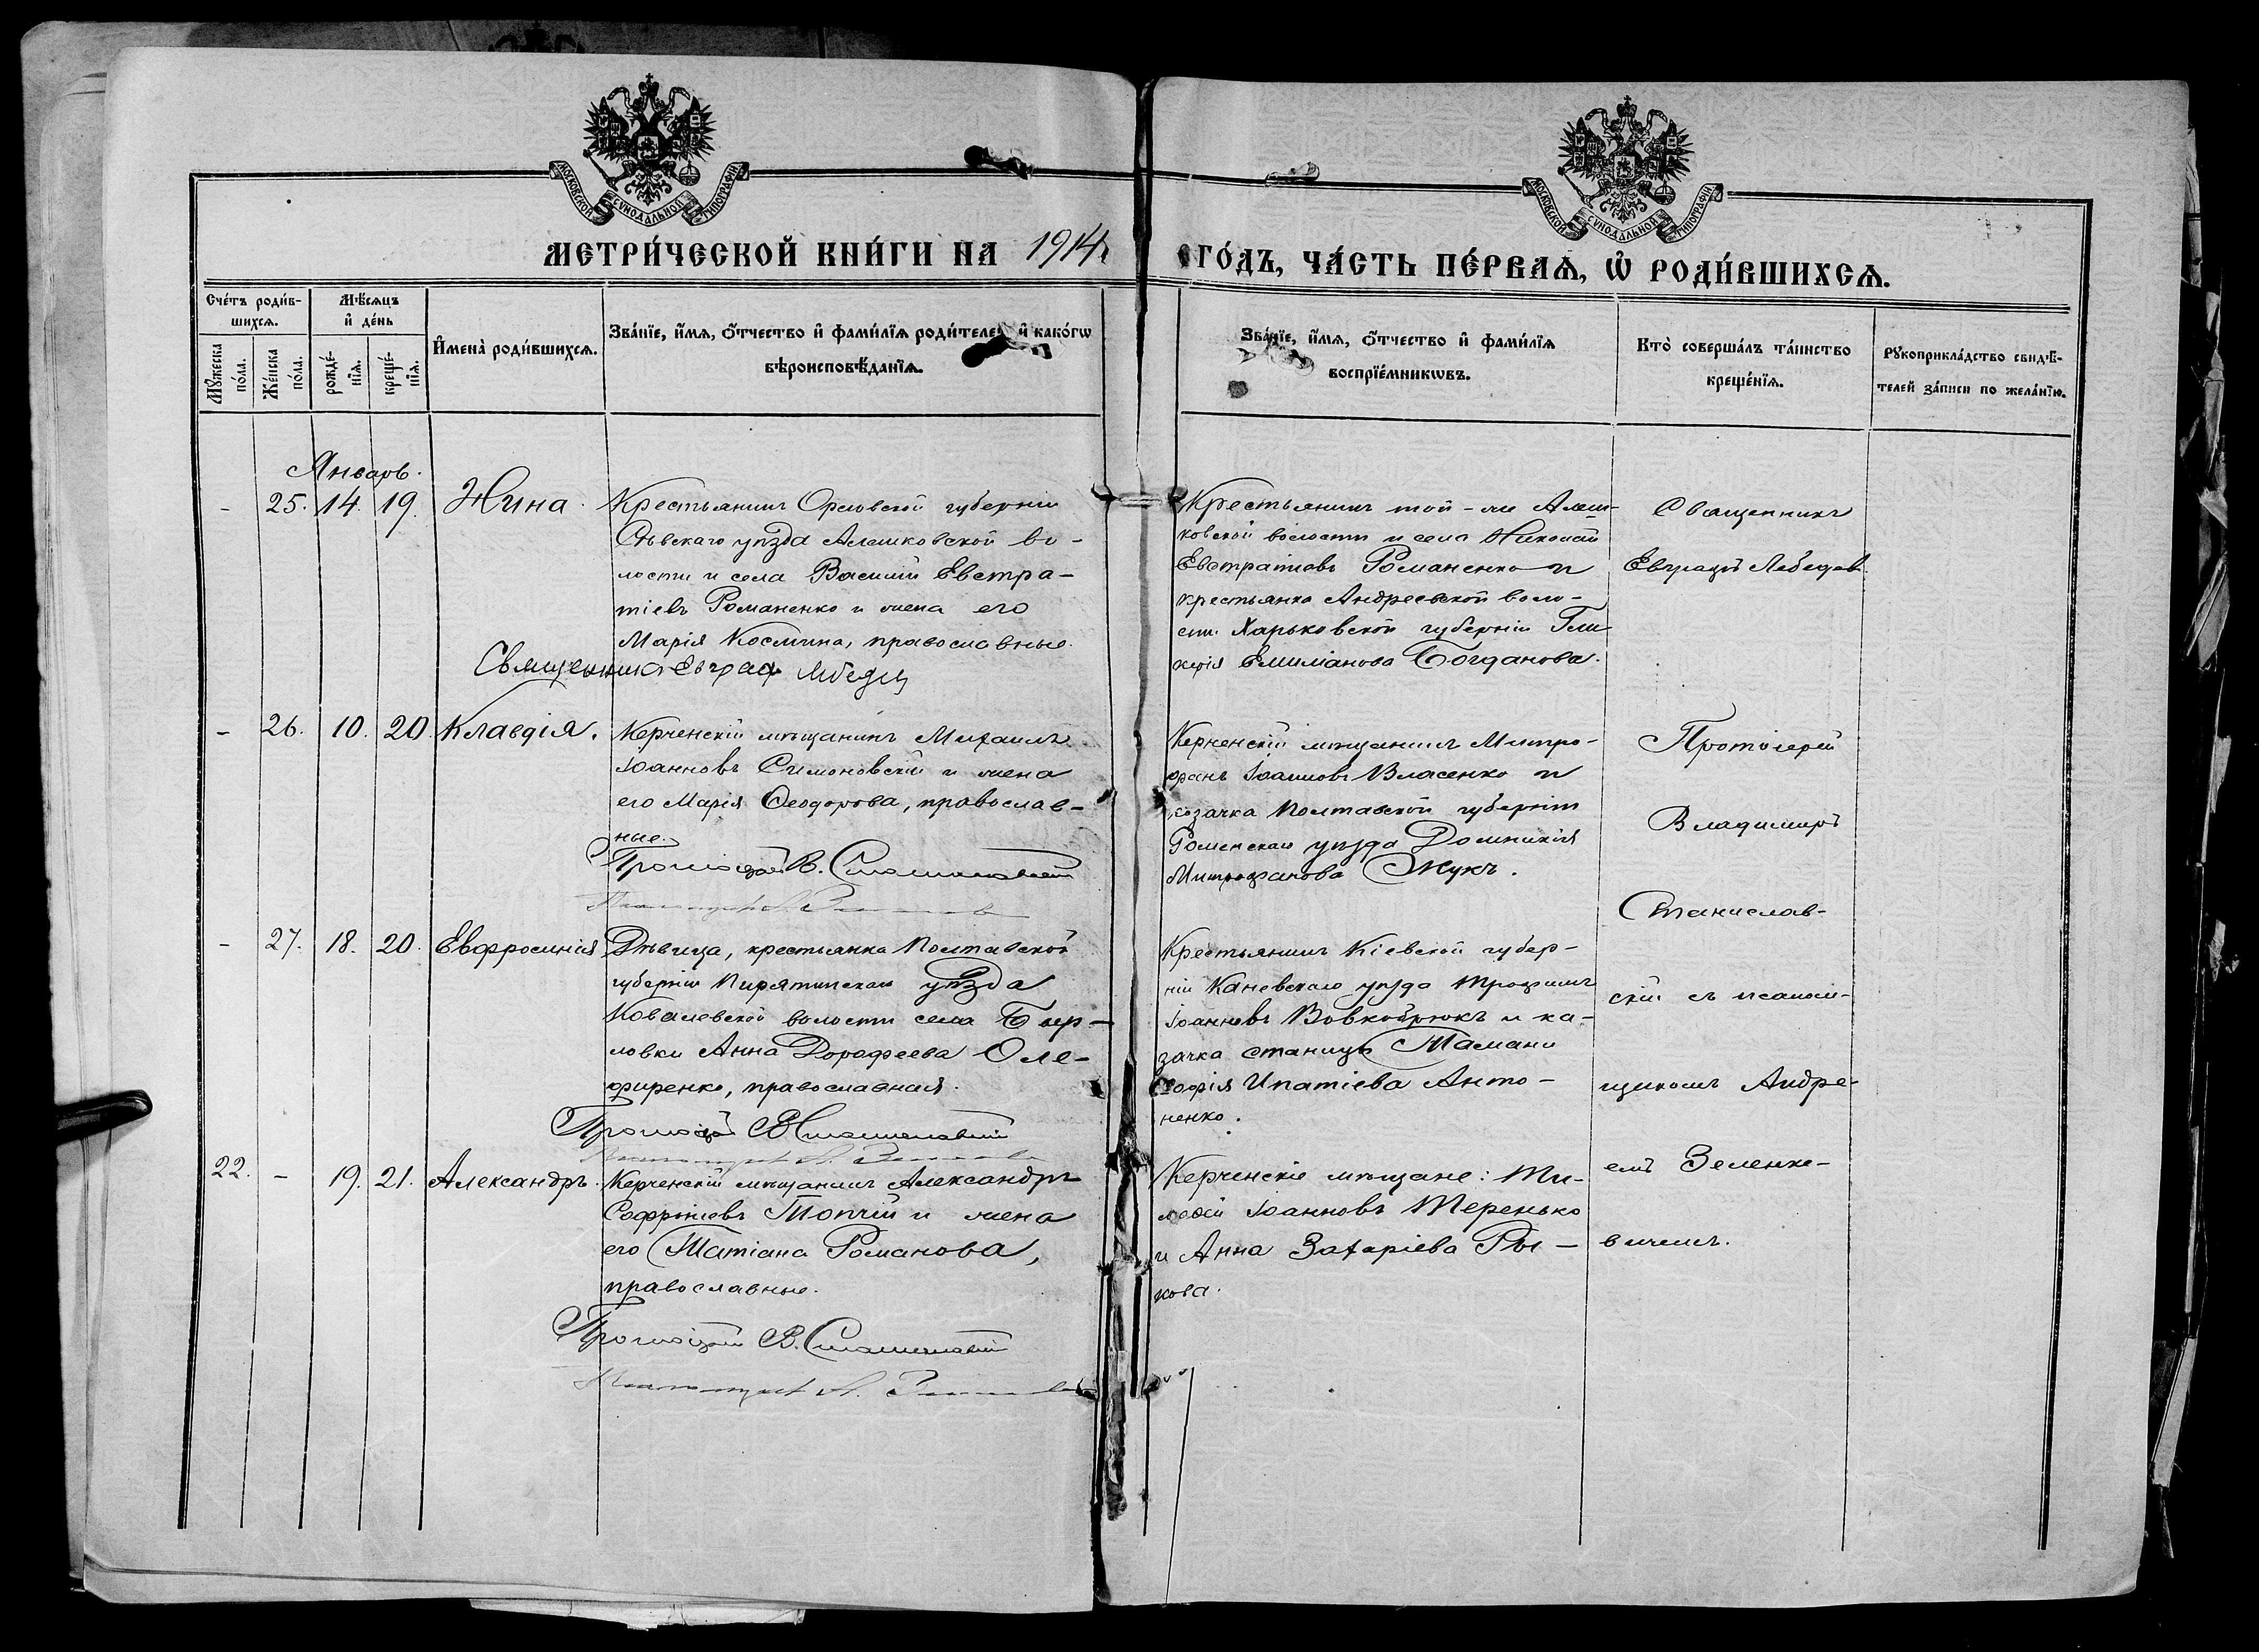 МОСКОВСКОЙ СѴНОДАЛЬНОЙ ТИПОГРАФІИ
МОСКОВСКОЙ СѴНОДАЛЬНОЙ ТИПОГРАФІИ
МЕТРИ́ЧЕСКОЙ КНИ́ГИ НА 1914
ГО́ДЪ, ЧА́СТЬ ПЕ́РВАѦ, Ѡ РОДИ́ВШИХСѦ.
Сче́тъ роди́в-
шихсѧ.
Мѣ́сѧцъ
и҆ де́нь
Мꙋ́жеска
по́ла.
Же́нска
по́ла.
рожде́-
нїѧ.
креще́-
нїѧ.
И҆мена̀ роди́вшихсѧ.
Зва́нїе, и҆́мѧ, ѻ҆́тчество и҆ фами́лїѧ роди́телей и҆ како́гѡ
вѣроисповѣ́данїѧ.
Зва́нїе, и҆́мѧ, ѻ҆́тчество и҆ фами́лїѧ
воспрїе́мникѡвъ.
Кто̀ соверша́лъ та́инство
креще́нїѧ.
Рꙋкоприкла́дство свидѣ́-
телей за́писи по жела́нїю.
Январь.
- 25. 14. 19. Нина.
Крестьянинъ Орловской губерніи
Сѣвскаго уѣзда Алешковской во-
лости и села Василій Евстра-
тіевъ Романенко и жена его
Марія Космина, православные.
Священникъ Евграфъ Лебедев
Крестьянинъ той-же Алеш-
ковской волости и села Николай
Евстратіевъ Романенко и
крестьянка Андреевской воло-
сти Харьковской губерніи Гли-
керія Емиліанова Богданова.
Священникъ
Евграфъ Лебедев
- 26. 10. 20. Клавдія.
Керченскій мѣщанинъ Михаилъ
Іоанновъ Симоновскій и жена
его Марія Ѳеодорова, православ-
ные.
Протоіерей В. Станиславскій
Керченскій мѣщанинъ Митро-
фанъ Іоанновъ Власенко и
козачка Полтавской губерніи
Роменскаго уѣзда Домникія
Митрофанова Жукъ.
Протоіерей
Владимиръ
Станислав-
скій съ псалом-
щикомъ Андре-
емъ Зеленке-
вичемъ.
- 27. 18. 20. Евфросинія
Дѣвица, крестьянка Полтавской
губерніи Пирятинскаго уѣзда
Ковалевской волости села Бер-
ловки Анна Дорофеева Оле-
фиренко, православная.
Протоіерей В. Станиславскій
Крестьянинъ Кіевской губер-
ніи Каневскаго уѣзда Трофимъ
Іоанновъ Вовкобрюкъ и ка-
зачка станицы Тамани
Софія Ипатіева Анто-
ненко.
22. - 19. 21. Александръ.
Керченскій мѣщанинъ Александръ
Софроніевъ Топчій и жена
его Татіана Романова,
православные.
Протоіерей В. Станиславскій
Керченскіе мѣщане: Ти-
моѳей Іоанновъ Теренько
и Анна Захаріева Ры-
кова.